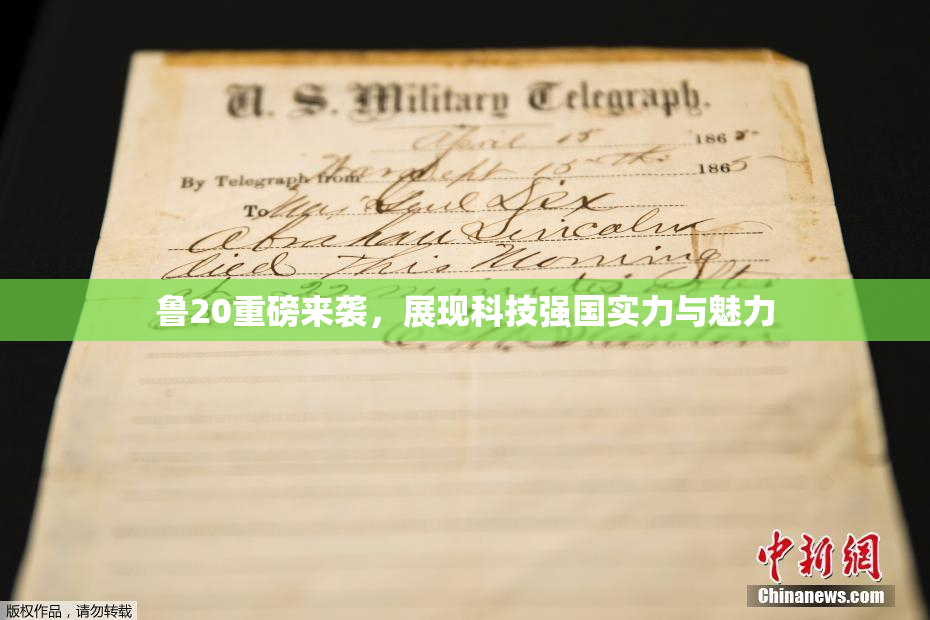 U. S. Military Telegraph.
April 15 1865
By Telegraph from War Dept 15th 1865
To Maj Genl Dix
Abraham Lincoln
died This Morning
at 22 minutes after
鲁20重磅来袭，展现科技强国实力与魅力
E. M. Stanton
中新网
Chinanews.com
版权作品，请勿转载